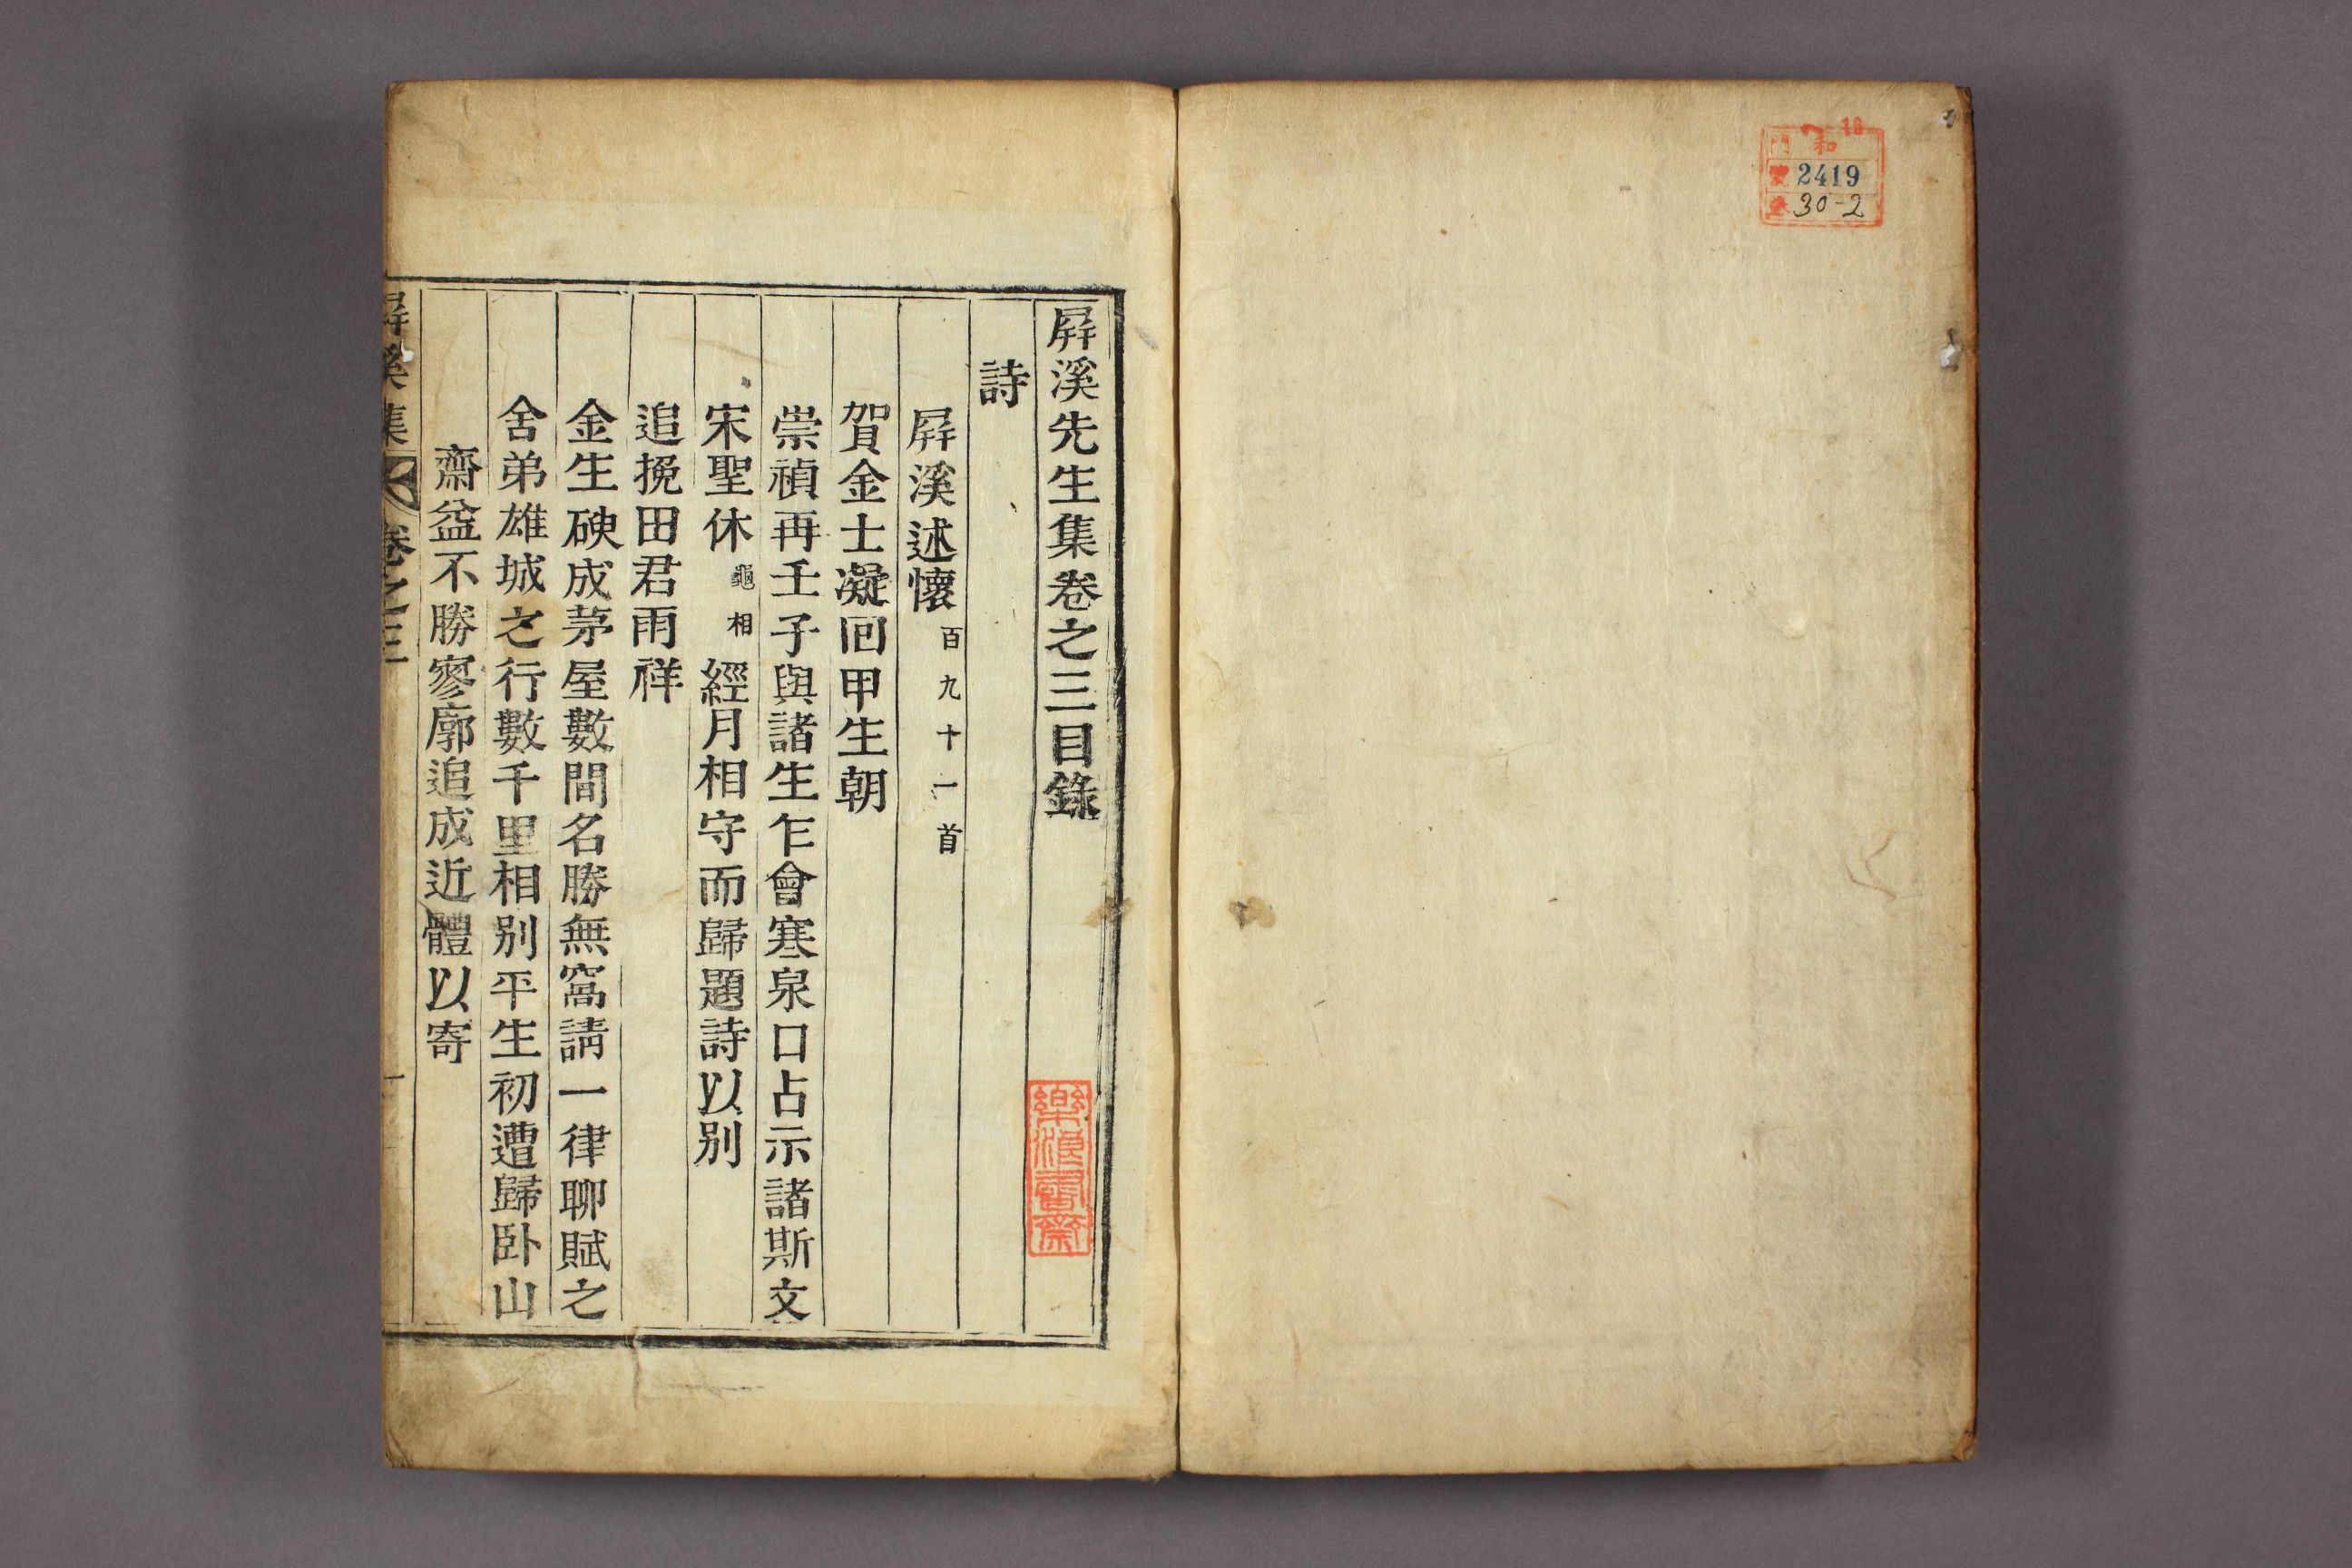 和
門
號 2419
30-2
屛溪先生集卷之三目錄
詩
屛溪述懷 百九十一首
賀金士凝回甲生朝
崇禎再壬子與諸生乍會寒泉口占示諸斯文
宋聖休 龜相 經月相守而歸題詩以別
追挽田君雨祥
金生硬成茅屋數間名勝無窩請一律聊賦之
舍弟雄城之行數千里相別平生初遭歸卧山
齋益不勝寥廓追成近體以寄
樂浪書齋
屛溪集 卷之三 一